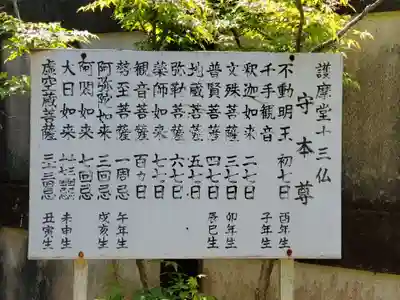 護摩堂十三仏
守本尊
不動明王 初七日 酉年生
千手観音 子年生
釈迦如来 二七日
文殊菩薩 三七日 卯年生
普賢菩薩 四七日 辰巳生
地蔵菩薩 五七日
弥勒菩薩 六七日
薬師如来 七七日
観音菩薩 百ヶ日
勢至菩薩 一周忌 午年生
阿弥陀如来 三回忌 戌亥生
阿閦如来 七回忌
大日如来 未申生
虚空蔵菩薩 三十三回忌 丑寅生